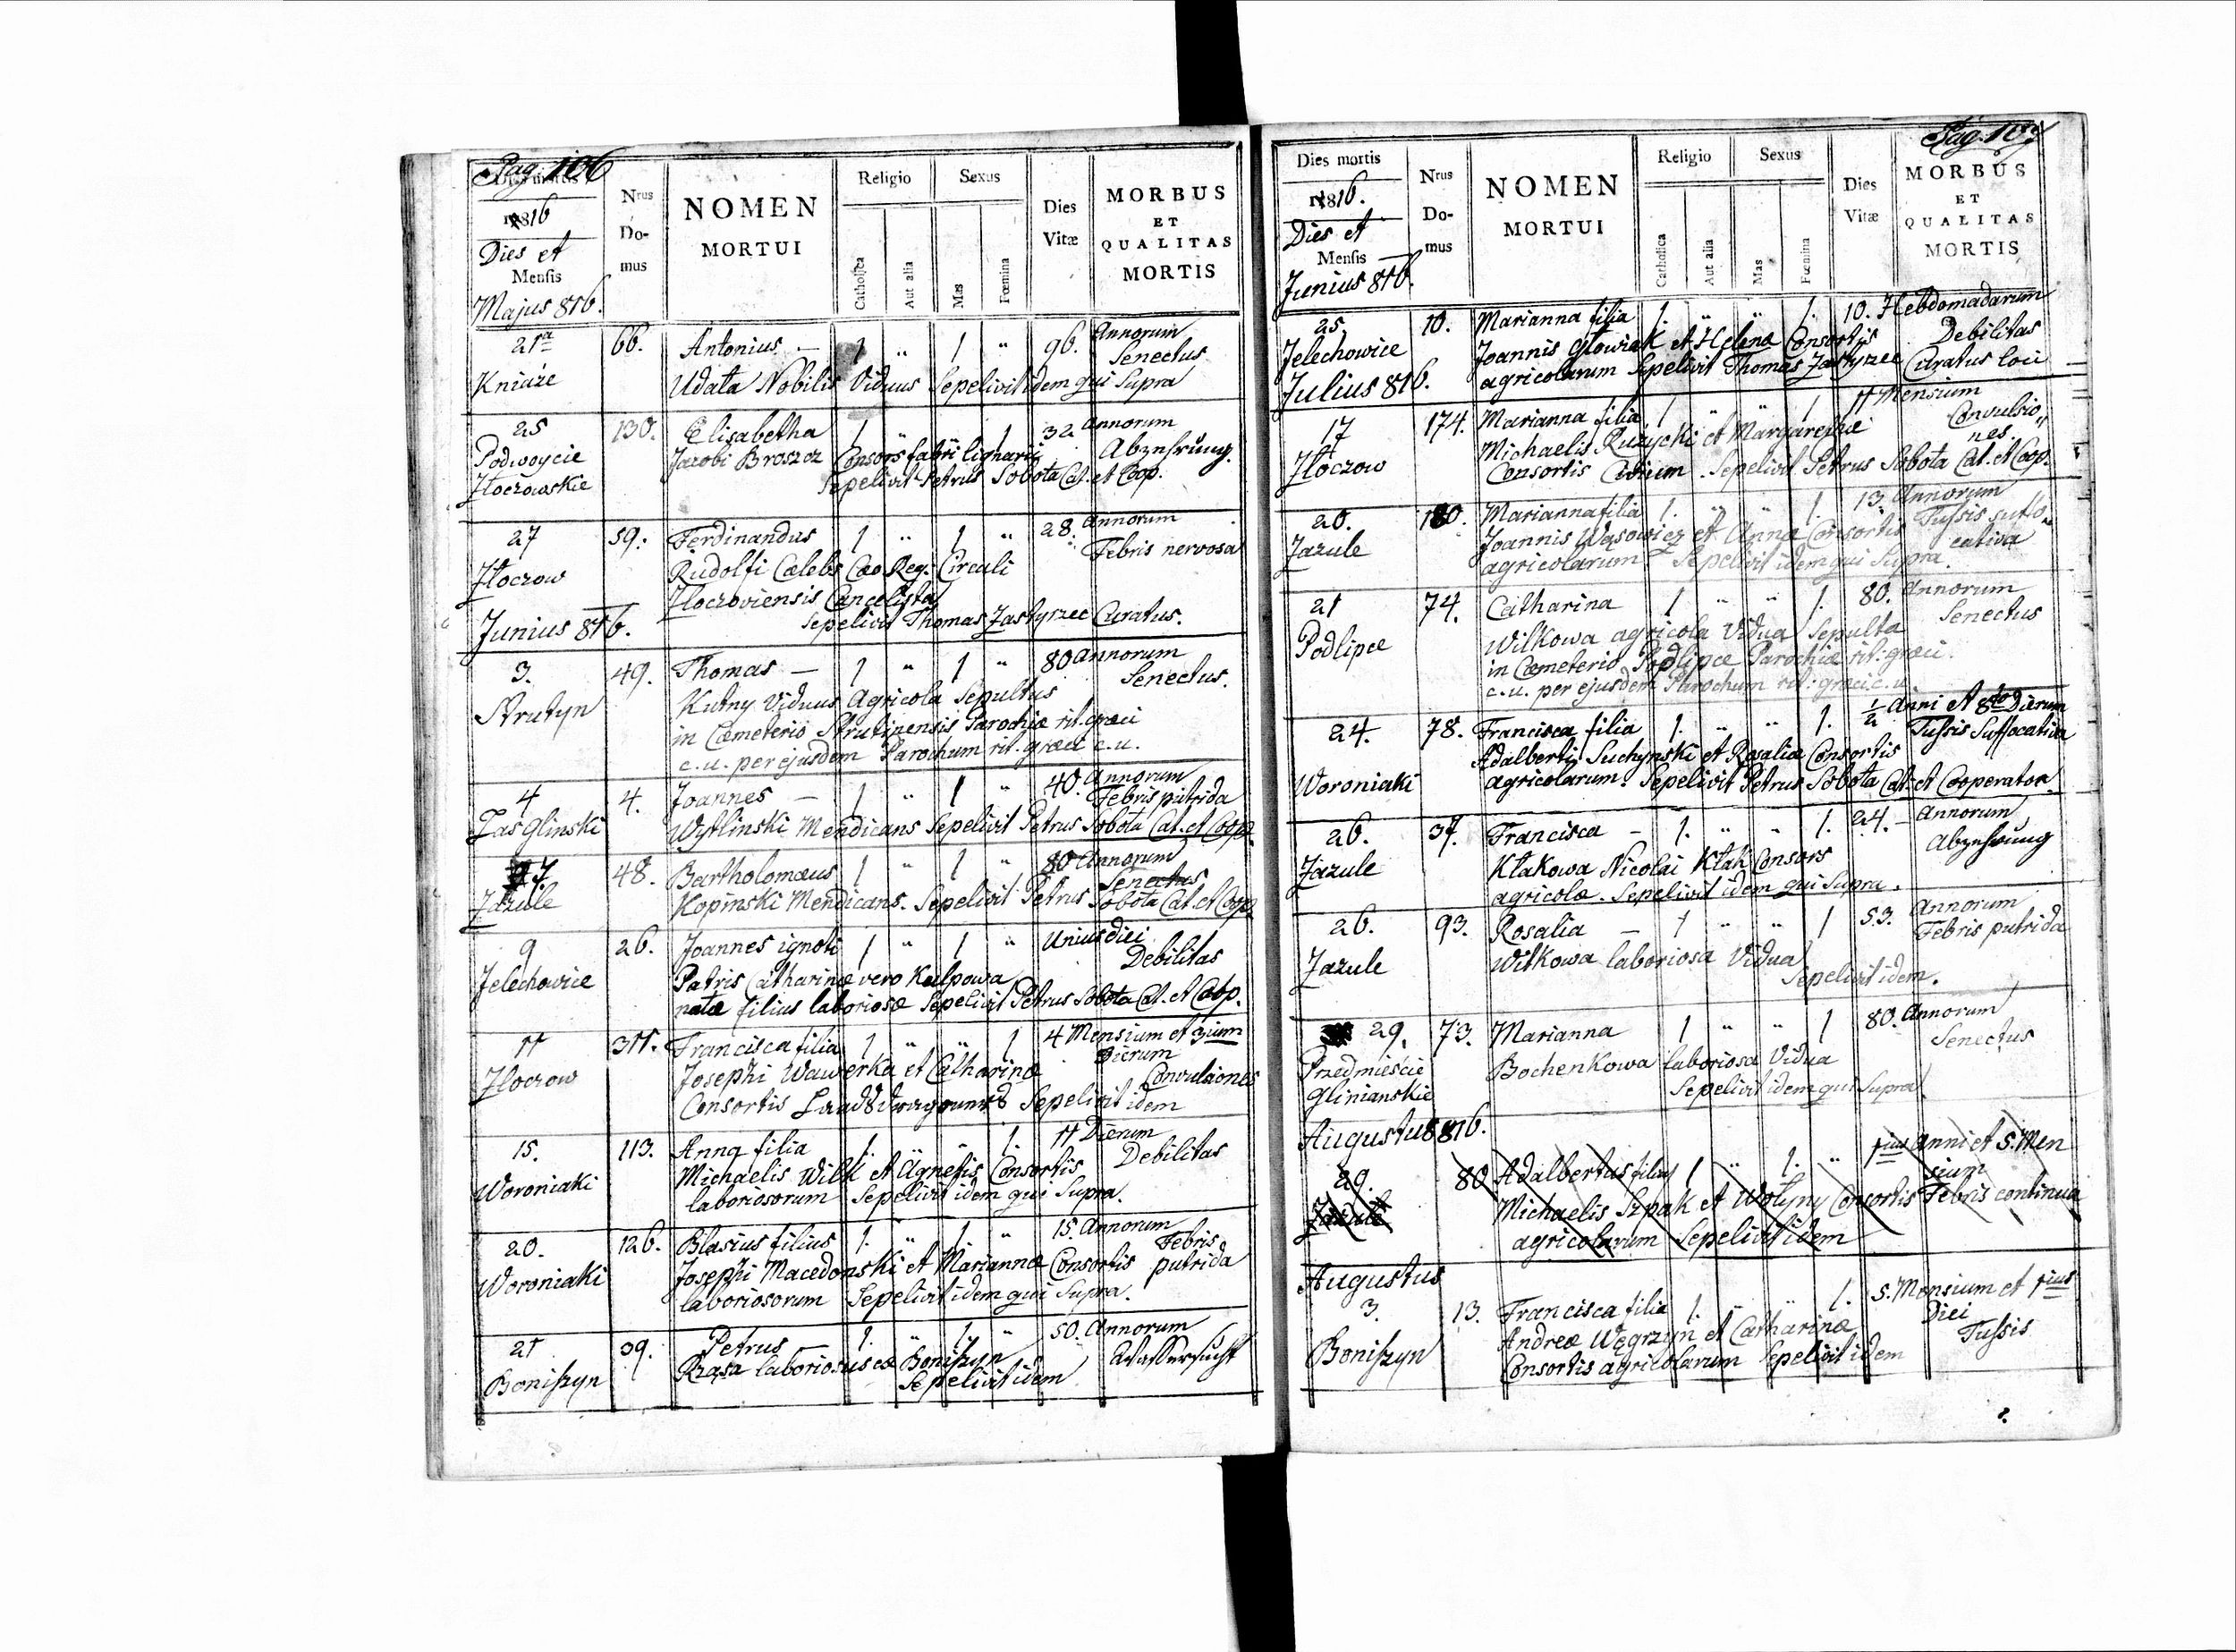 Pag. 106
Dies mortis
1816
Dies et
Mensis
Majus 816.
Nrus Do-mus
NOMEN
MORTUI
Religio
Catholica
Aut alia
Sexus
Mas
Fœmina
Dies
Vitæ
MORBUS
ET
QUALITAS
MORTIS
21a 66. Antonius — 1 " 1 " 96. Annorum
Senectus
Kniaże Udata Nobilis Viduus Sepelivit idem qui Supra
25 130. Elisabetha 1 " " 1 32 Annorum
Podwoycie Jacobi Broszcz Consors fabri lignarii Abzehrung.
Złoczowskie Sepelivit Petrus Sobota Cat. et Coop.
27 59. Ferdinandus 1 " 1 " 28. Annorum
Febris nervosa
Złoczow Rudolfi Cælebs Cæo Reg. Circuli
Złoczoviensis Cancelista
Sepelivit Thomas Zastyrzec Curatus.
Junius 816.
3. 49. Thomas — 1 " 1 " 80 Annorum
Senectus.
Strutyn Kutny Viduus Agricola Sepultus
in Cœmeterio Strutinensis Parochiæ rit. græci
c.u. per ejusdem Parochum rit. græci c.u.
4 4. Joannes — 1 " 1 " 40. Annorum
Febris putrida
Zas Glinski Wytlinski Mendicans Sepelivit Petrus Sobota Cat. et Coop.
7. 48. Bartholomæus 1 " 1 " 80 Annorum
Senectus
Zazule Kopinski Mendicans. Sepelivit Petrus Sobota Cat. et Coop.
9 26. Joannes ignoti 1 " 1 " Unius diei
Debilitas
Jelechowice Patris Catharinæ vero Kulpowa
natæ filius laboriosæ Sepelivit Petrus Sobota Cat. et Coop.
11 311. Francisca filia 1 " " 1 4 Mensium et
Dierum
Złoczow Josephi Wawerka et Catharinæ Convulsiones
Consortis Sepelivit idem
15. 113. Anna filia 1. " " 1. 11 Dierum
Debilitas
Woroniaki Michaelis Wilk et Agnetis Consortis
laboriosorum Sepelivit idem qui Supra.
20. 126. Blasius filius 1. " 1 " 15. Annorum
Febris
putrida
Woroniaki Josephi Macedonski et Mariannæ Consortis
laboriosorum Sepelivit idem qui Supra.
21 39. Petrus — 1. " 1. " 50. Annorum
Wassersucht
Boniszyn Rząsa laboriosus ex Boniszyn
Sepelivit idem
Pag. 107
Dies mortis
1816.
Dies et
Mensis
Junius 816.
Nrus Do-mus
NOMEN
MORTUI
Religio
Catholica
Aut alia
Sexus
Mas
Fœmina
Dies
Vitæ
MORBUS
ET
QUALITAS
MORTIS
25. 10. Marianna filia 1. " " 1. 10. Hebdomadarum
Debilitas
Jelechowice Joannis Głowiak et Helenæ Consortis
agricolarum Sepelivit Thomas Zastyrzec Curatus loci
Julius 816.
17 174. Marianna filia 1 " " 1 11 Mensium
Convulsio
nes.
Złoczow Michaelis Ruzycki et Margarethæ
Consortis Civium. Sepelivit Petrus Sobota Cat. et Coop.
20. 180. Marianna filia 1. " " 1. 13. Annorum
Tussis suffo
cativa
Zazule Joannis Wąsowicz et Annæ Consortis
agricolarum Sepelivit idem qui Supra.
21 74. Catharina 1 " " 1. 80. Annorum
Senectus
Podlipce Wilkowa agricola Vidua Sepulta
in Cœmeterio Podlipce Parochiæ rit: græci
c.u. per ejusdem Parochum rit: græci c.u.
24. 78. Francisca filia 1. " " 1. 1/2 Anni et 8do Dierum
Tussis Suffocativa
Woroniaki Adalberti Suchynski et Rosaliæ Consortis
agricolarum. Sepelivit Petrus Sobota Cat. et Cooperator.
26. 37. Francisca — 1. " " 1. 24. Annorum
Abzehrung
Zazule Kłakowa Nicolai Kłak Consors
agricolæ. Sepelivit idem qui Supra.
26. 93. Rosalia — 1 " " 1 53. Annorum
Febris putrida
Zazule Witkowa laboriosa Vidua
Sepelivit idem.
29. 73. Marianna 1 " " 1 80. Annorum
Senectus
Przedmieście
Glinianskie Bochenkowa laboriosa Vidua
Sepelivit idem qui Supra
Augustus 816.
29. 80 Adalbertus filius 1 " 1. " 1ius Anni et 5. Men
sium
Zazule Michaelis Szpak et Wołyny Consortis Febris continua
agricolarum Sepelivit idem
Augustus
3. 13. Francisca filia 1. " " 1. 5. Mensium et 1ius
Diei
Tussis
Boniszyn Andreæ Węgrzyn et Catharinæ
Consortis agricolarum Sepelivit idem